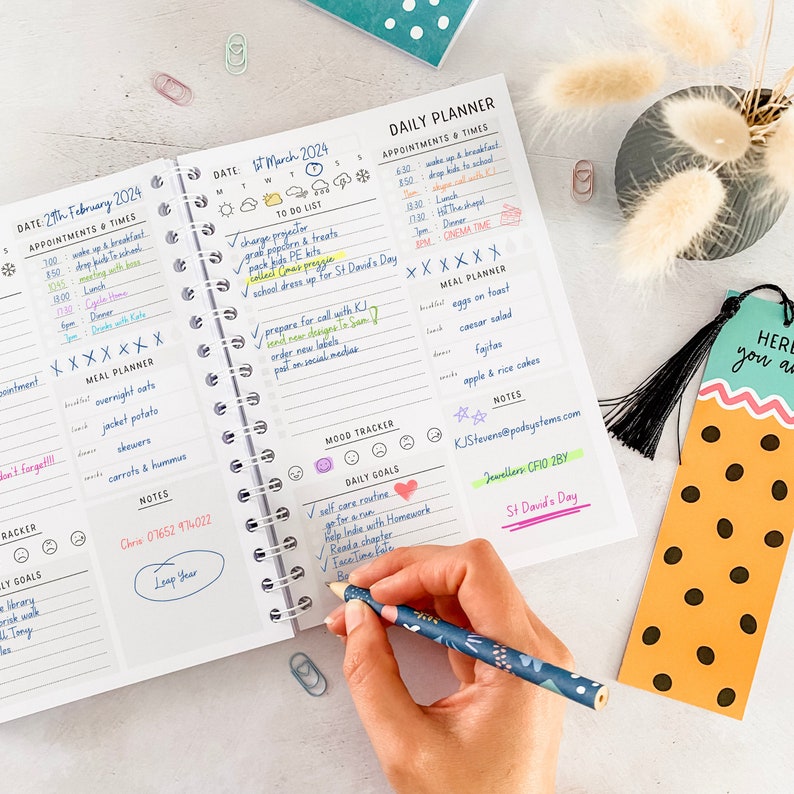 S
DATE: 29th February 2024
APPOINTMENTS & TIMES
7:00 : wake up & breakfast
8:50 : drop kids to school
10:45 : meeting with boss
13:00 : Lunch
17:30 : Cycle Home
6pm : Dinner
7pm : Drinks with Kate
MEAL PLANNER
breakfast overnight oats
lunch jacket potato
dinner skewers
snacks carrots & hummus
NOTES
Chris: 07652 974022
Leap Year
don't forget!!!
DATE: 1st March 2024
M T W T F S S
TO DO LIST
charge projector
grab popcorn & treats
pack kids PE kits
collect Gmas prezzie
school dress up for St David's Day
prepare for call with KJ
send new designs to Sam!
order new labels
post on social medias
MOOD TRACKER
DAILY GOALS
self care routine
go for a run
help Indie with Homework
Read a chapter
Face Time Kate
DAILY PLANNER
APPOINTMENTS & TIMES
6:30 : wake up & breakfast
8:50 : drop kids to school
11am : skype call with KJ
13:30 : Lunch
17:30 : Hit the shops!
7pm : Dinner
8PM : CINEMA TIME
MEAL PLANNER
breakfast eggs on toast
lunch caesar salad
dinner fajitas
snacks apple & rice cakes
NOTES
KJStevens@podsystems.com
Jewellers: CF10 2BY
St David's Day
HERE
you